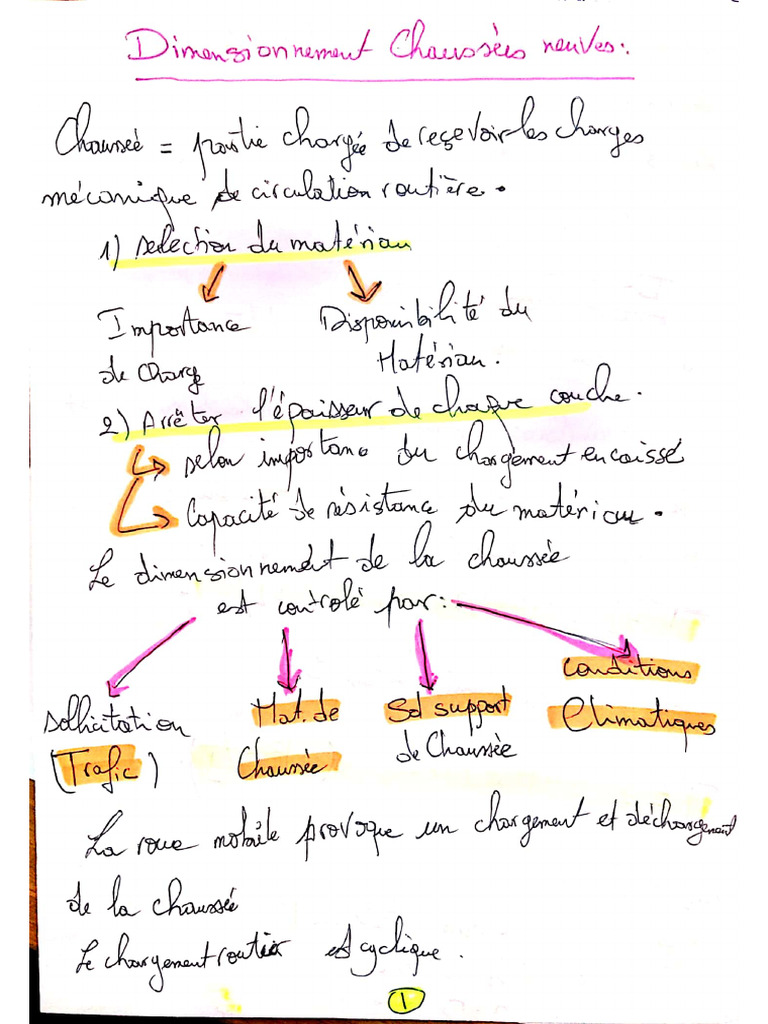 Dimensionnement Chaussées neuves:
Chaussée = partie chargée de reçevoir les charges
mécanique de circulation routière.
1) selection du matériau
Importance Disponibilité du
de charge Matériau.
2) Arrêter l'épaisseur de chaque couche.
selon importanc du chargement encaissé
Capacité de résistance du matériau.
Le dimensionnement de la chaussée
est contrôlé par:
Sollicitation (Trafic)
Mat. de Chaussée
Sol support de Chaussée
Conditions Climatiques
La roue mobile provoque un chargement et déchargement
de la chaussée
Le chargement routier est cyclique.
1